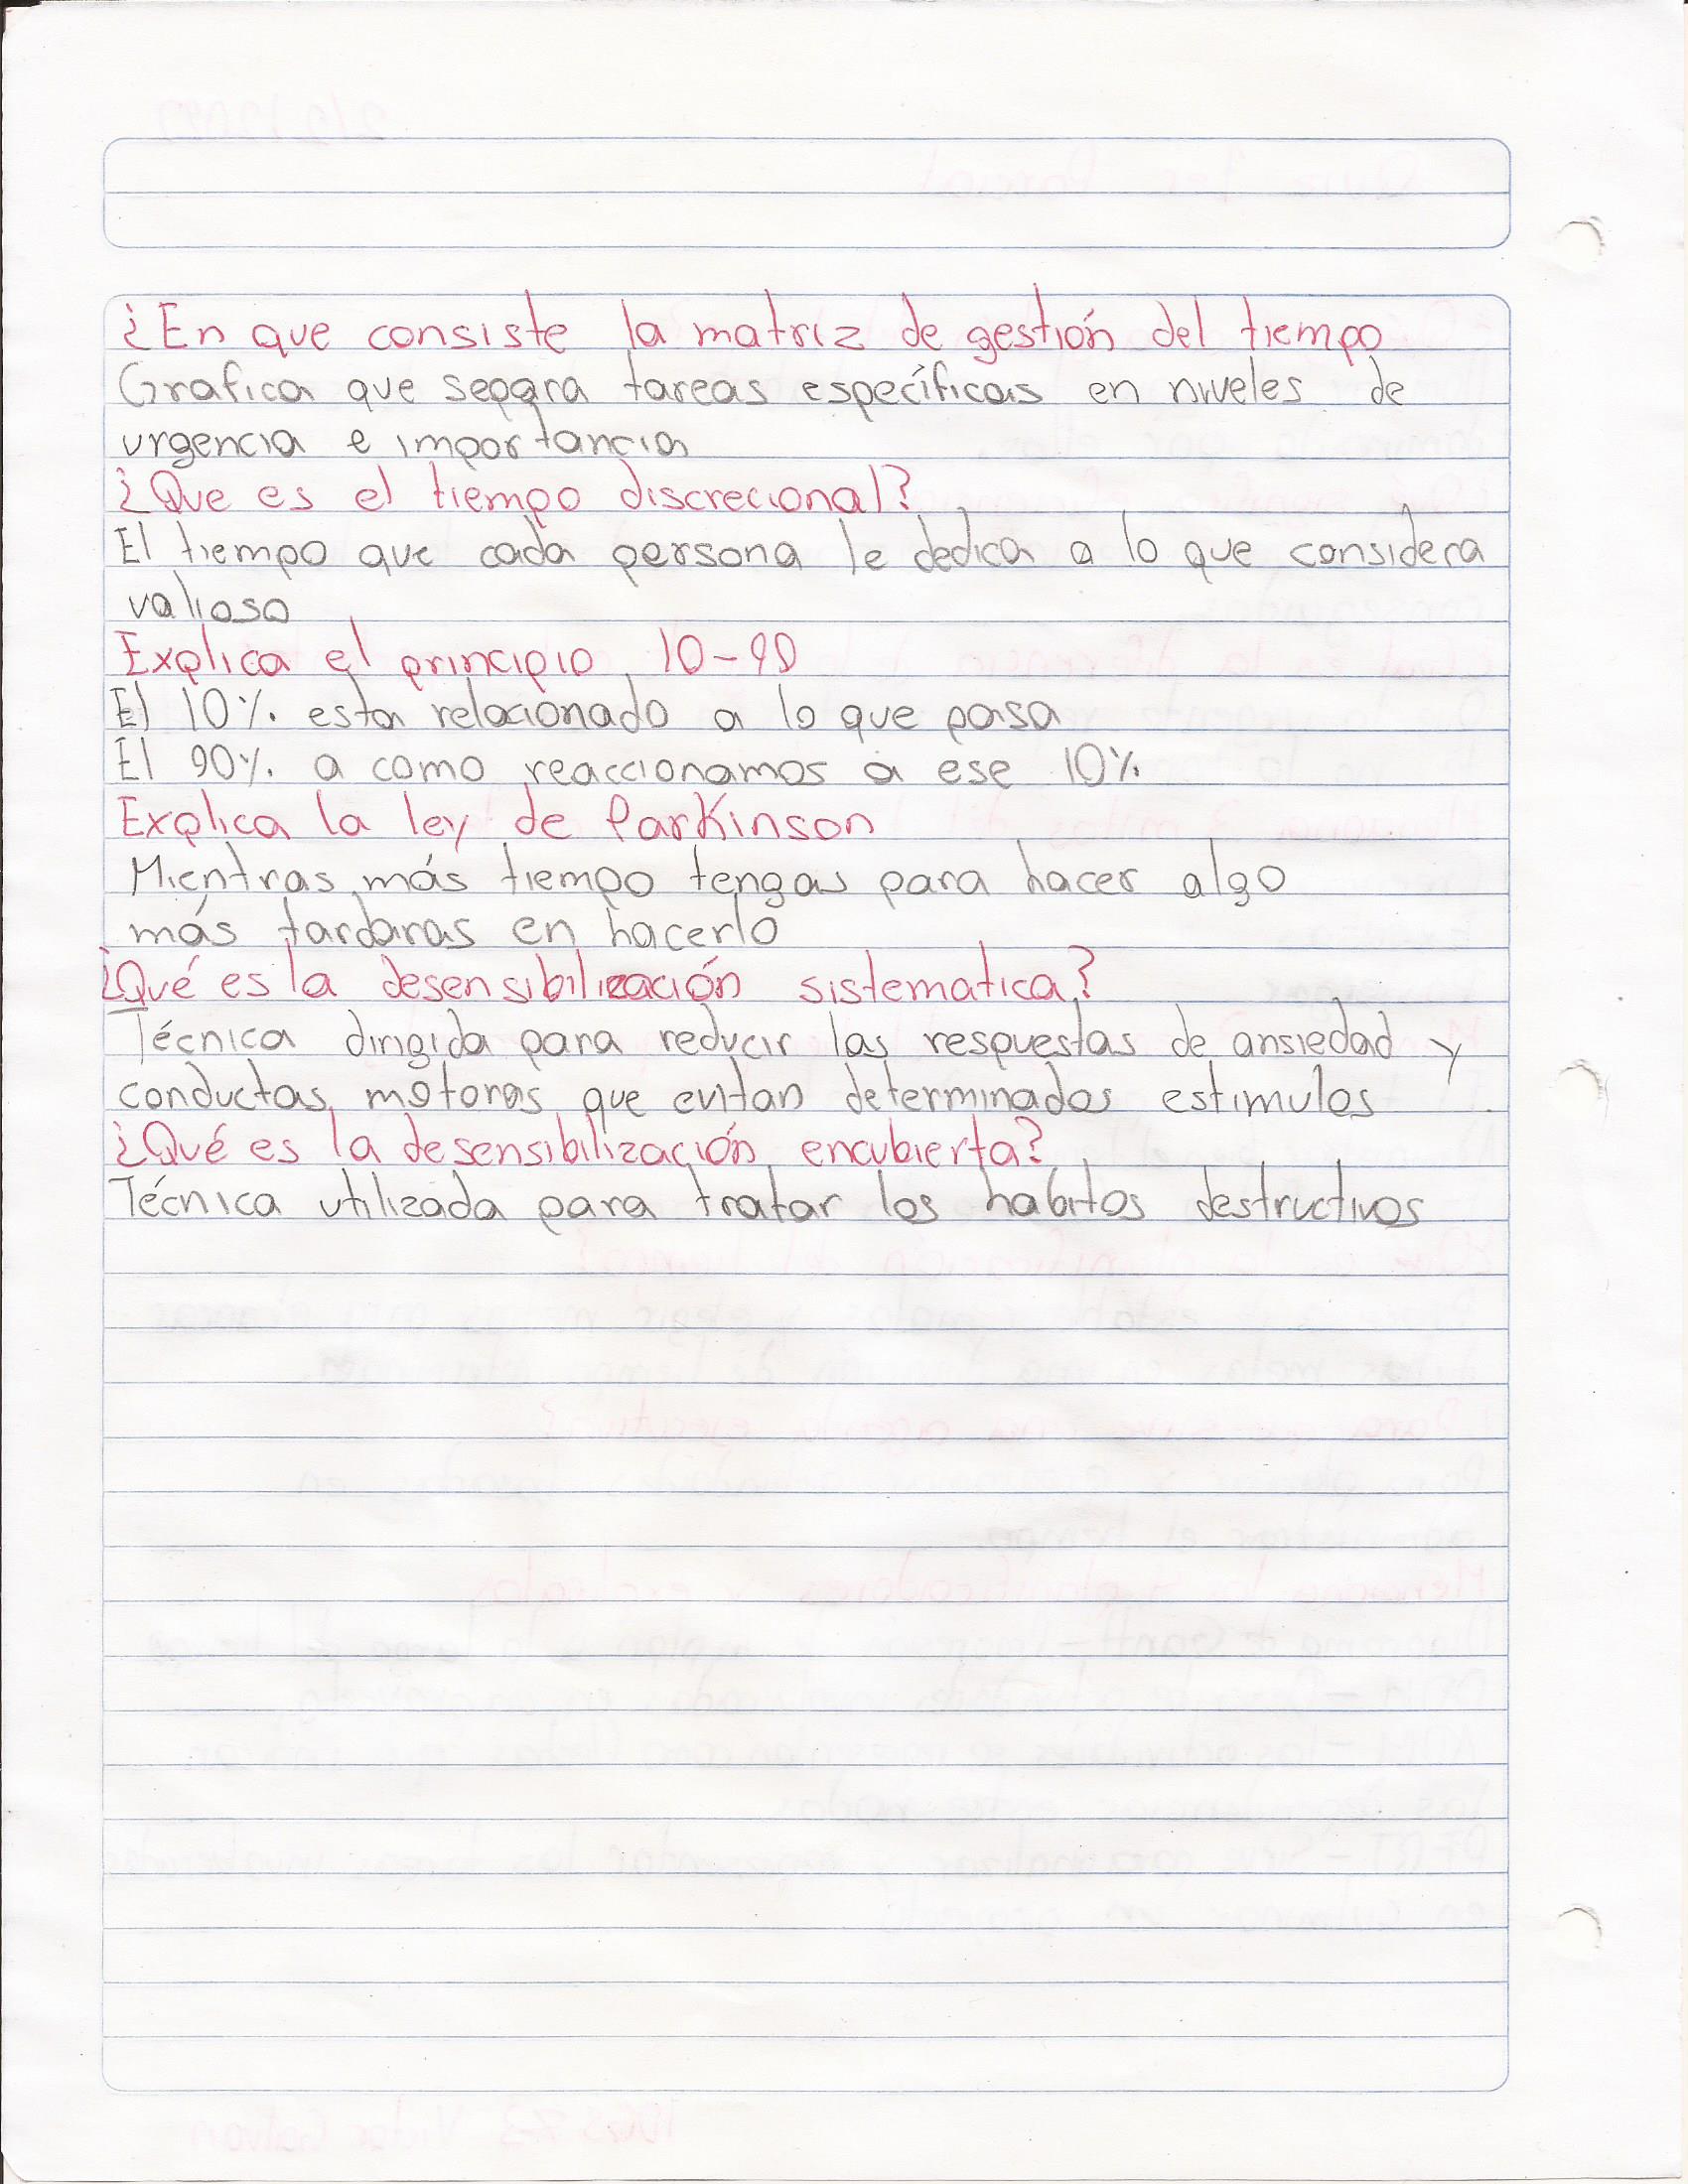 ¿En que consiste la matriz de gestión del tiempo
Grafica que separa tareas específicas en niveles de
urgencia e importancia
¿Que es el tiempo discrecional?
El tiempo que cada persona le dedica a lo que considera
valioso
Explica el principio 10-90
El 10% esta relacionado a lo que pasa
El 90% a como reaccionamos a ese 10%
Explica la ley de Parkinson
Mientras más tiempo tengas para hacer algo
más tardaras en hacerlo
¿Qué es la desensibilización sistematica?
Técnica dirigida para reducir las respuestas de ansiedad y
conductas motoras que evitan determinados estimulos
¿Qué es la desensibilización encubierta?
Técnica utilizada para tratar los habitos destructivos